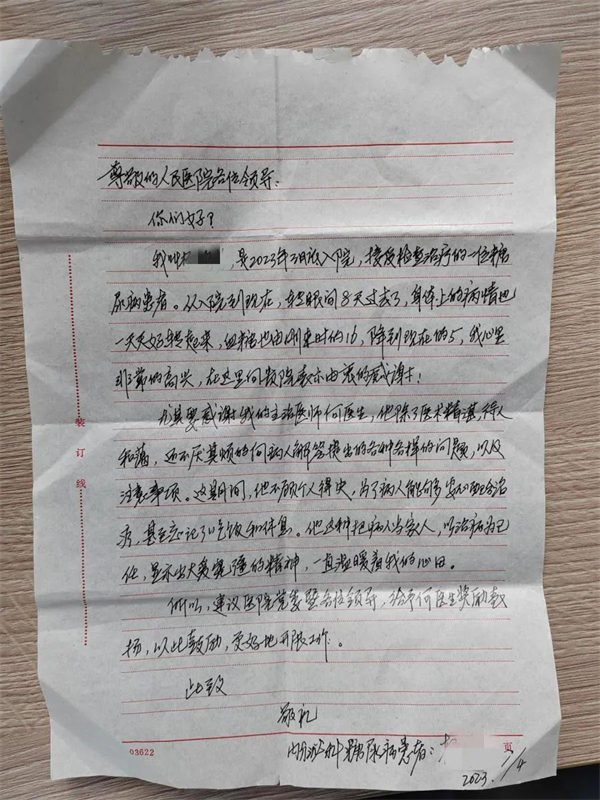 尊敬的人民医院各位领导:
你们好?
我叫 ，是2023年3日底入院，接受检查治疗的一位糖
尿病患者。从入院到现在，转眼间8天过去了，身体上的病情也
一天天好转起来，血糖也由刚来时的16，降到现在的5，我心里
非常的高兴，在这里向贵院表示由衷的感谢!
尤其要感谢我的主治医师何医生，他除了医术精湛，待人
和蔼，还不厌其烦的向病人解答提出的各种各样的问题，以及
注意事项。这期间，他不顾个人得失，为了病人能够安心配合治
疗，甚至忘记了吃饭和休息。他这种把病人当家人，以治病为己
任，显示出大爱无疆的精神，一直温暖着我的心田。
所以，建议医院党委暨各位领导，给予何医生奖励表
扬，以此鼓励，更好地开展工作。
此致
敬礼
内分泌科糖尿病患者:
2023.
装订线
03622
页